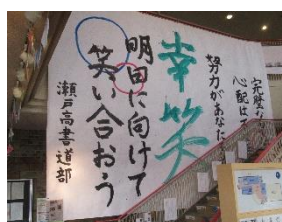 完璧な
心配は
努力があなた
幸笑
明日に向けて
笑い合おう
瀬戸高書道部